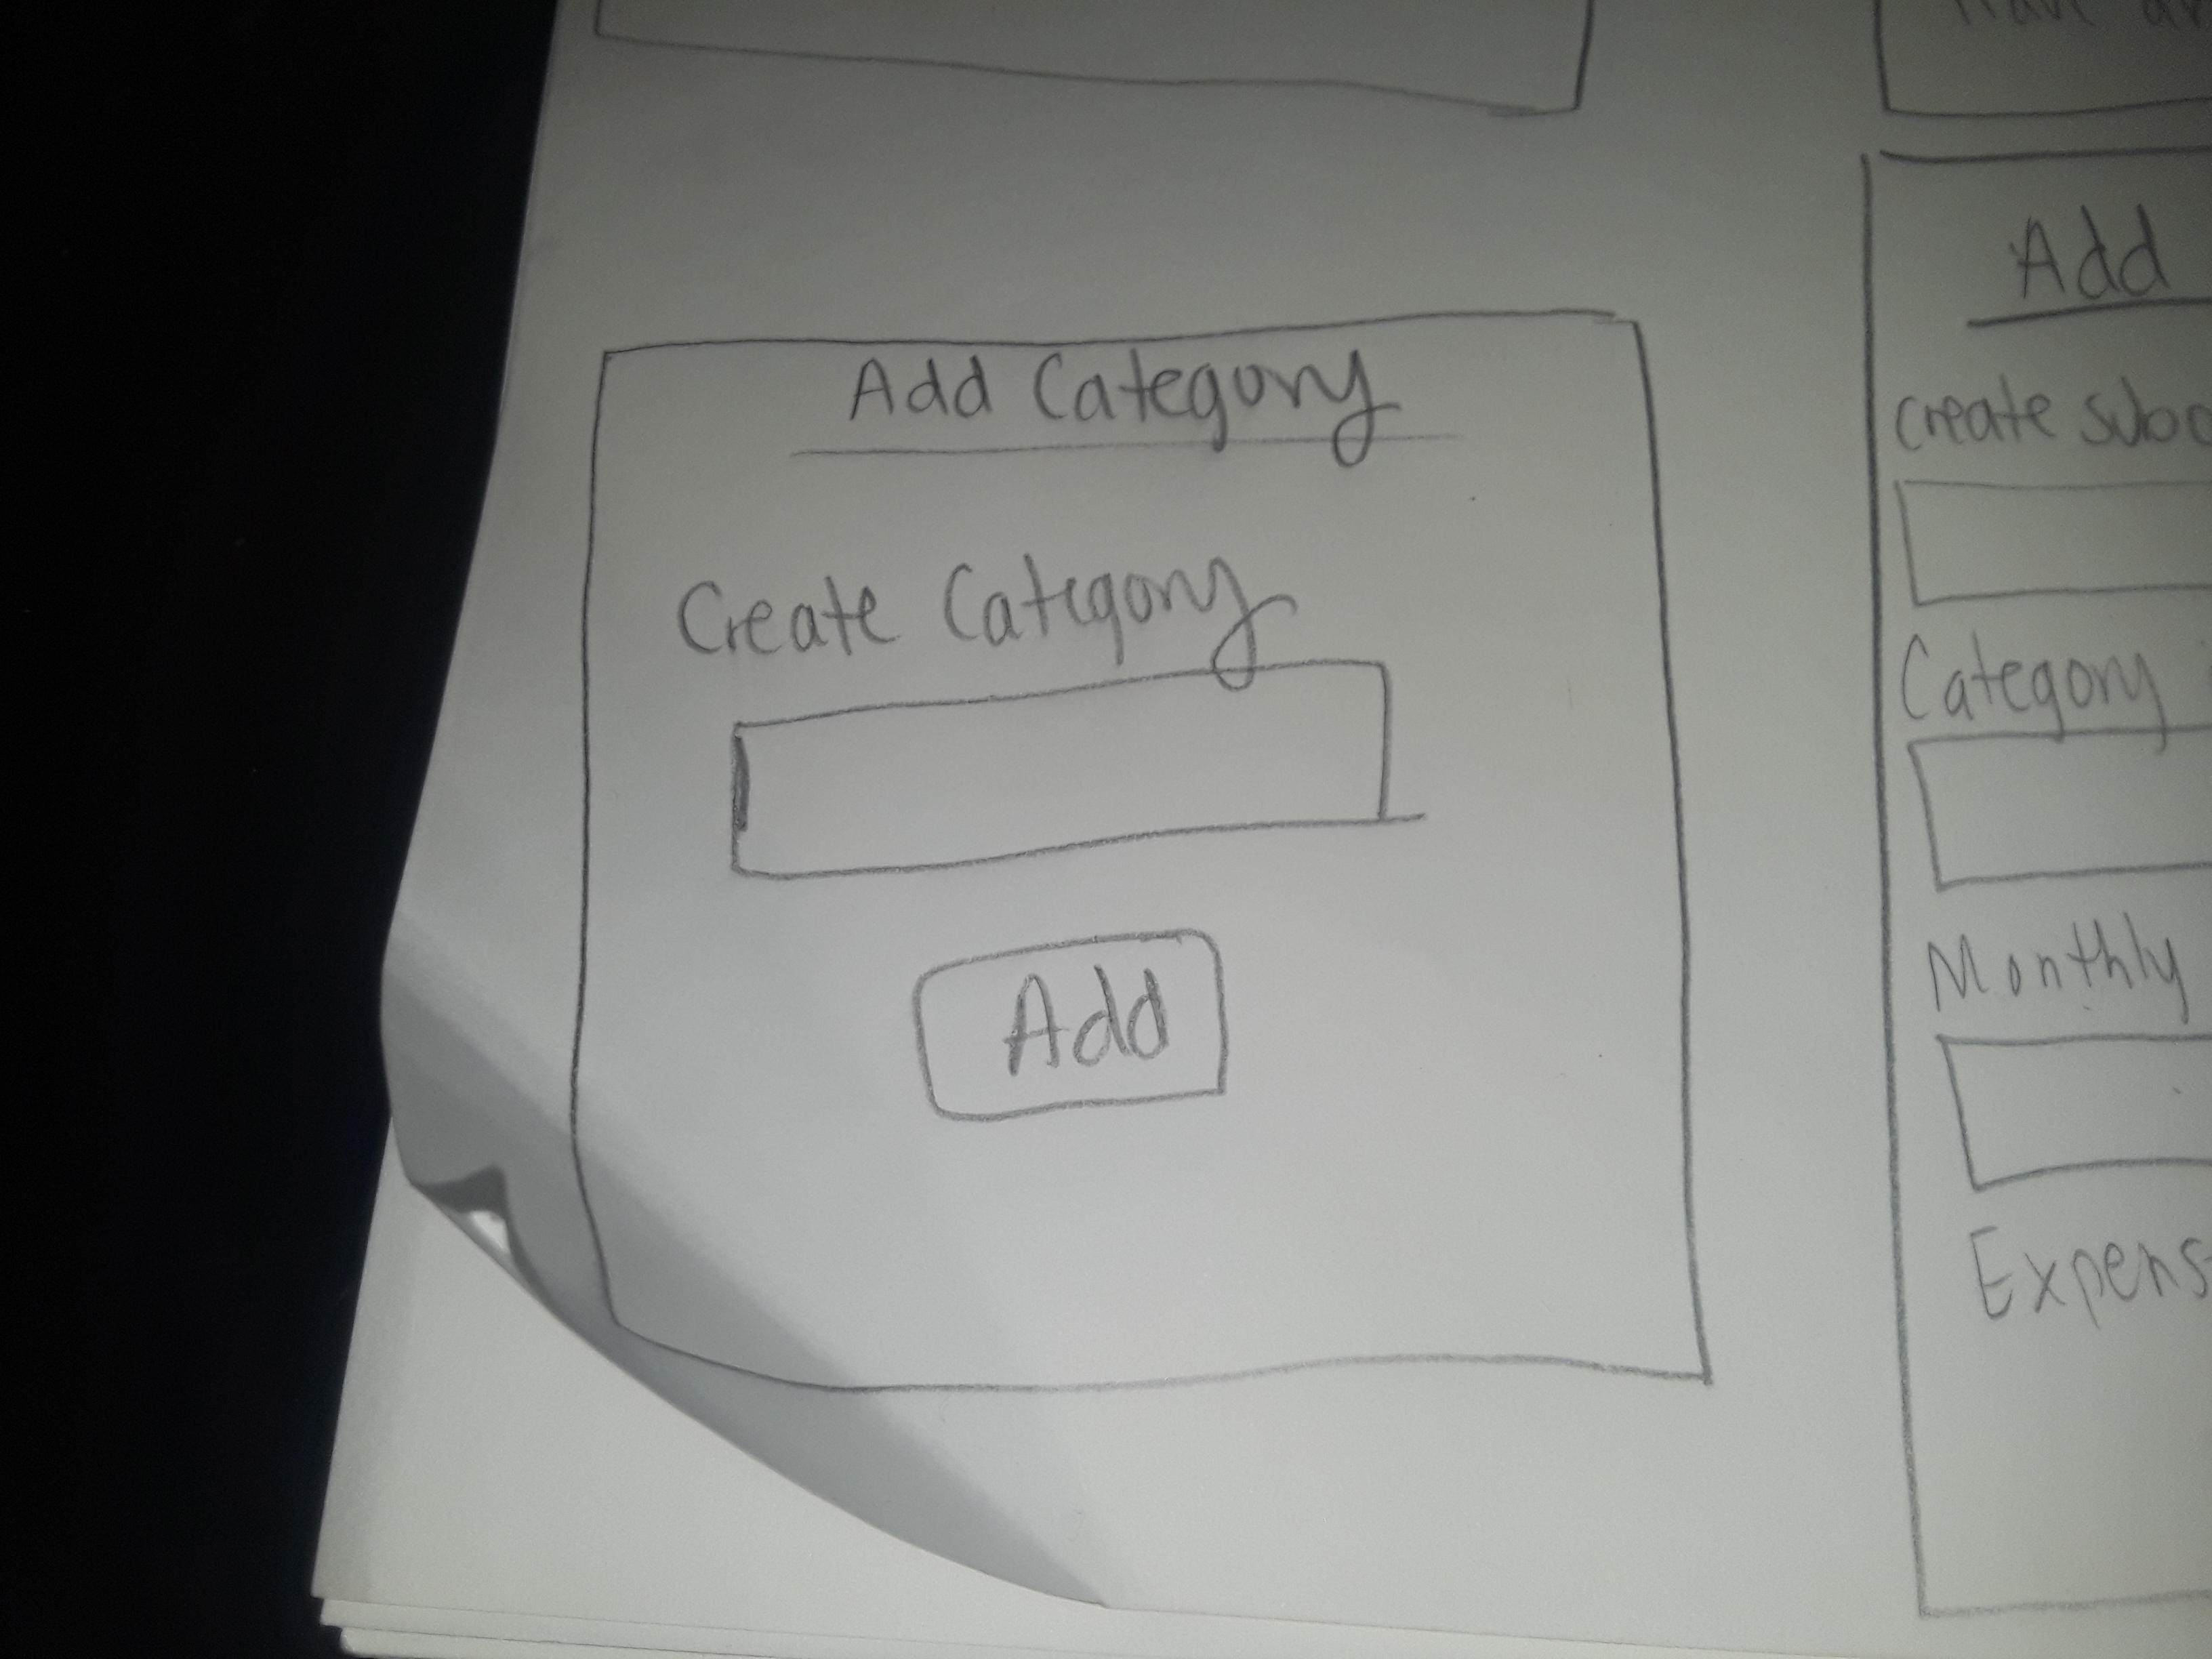 Add Category
Create Category
Add
Add
Create
Category
Monthly